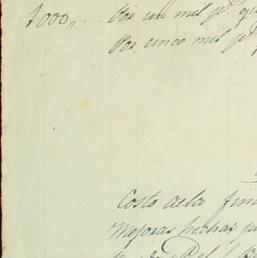 1000,, Por un mil ps.
Por cinco mil ps.
Costo de la fin
Mejoras hechas p